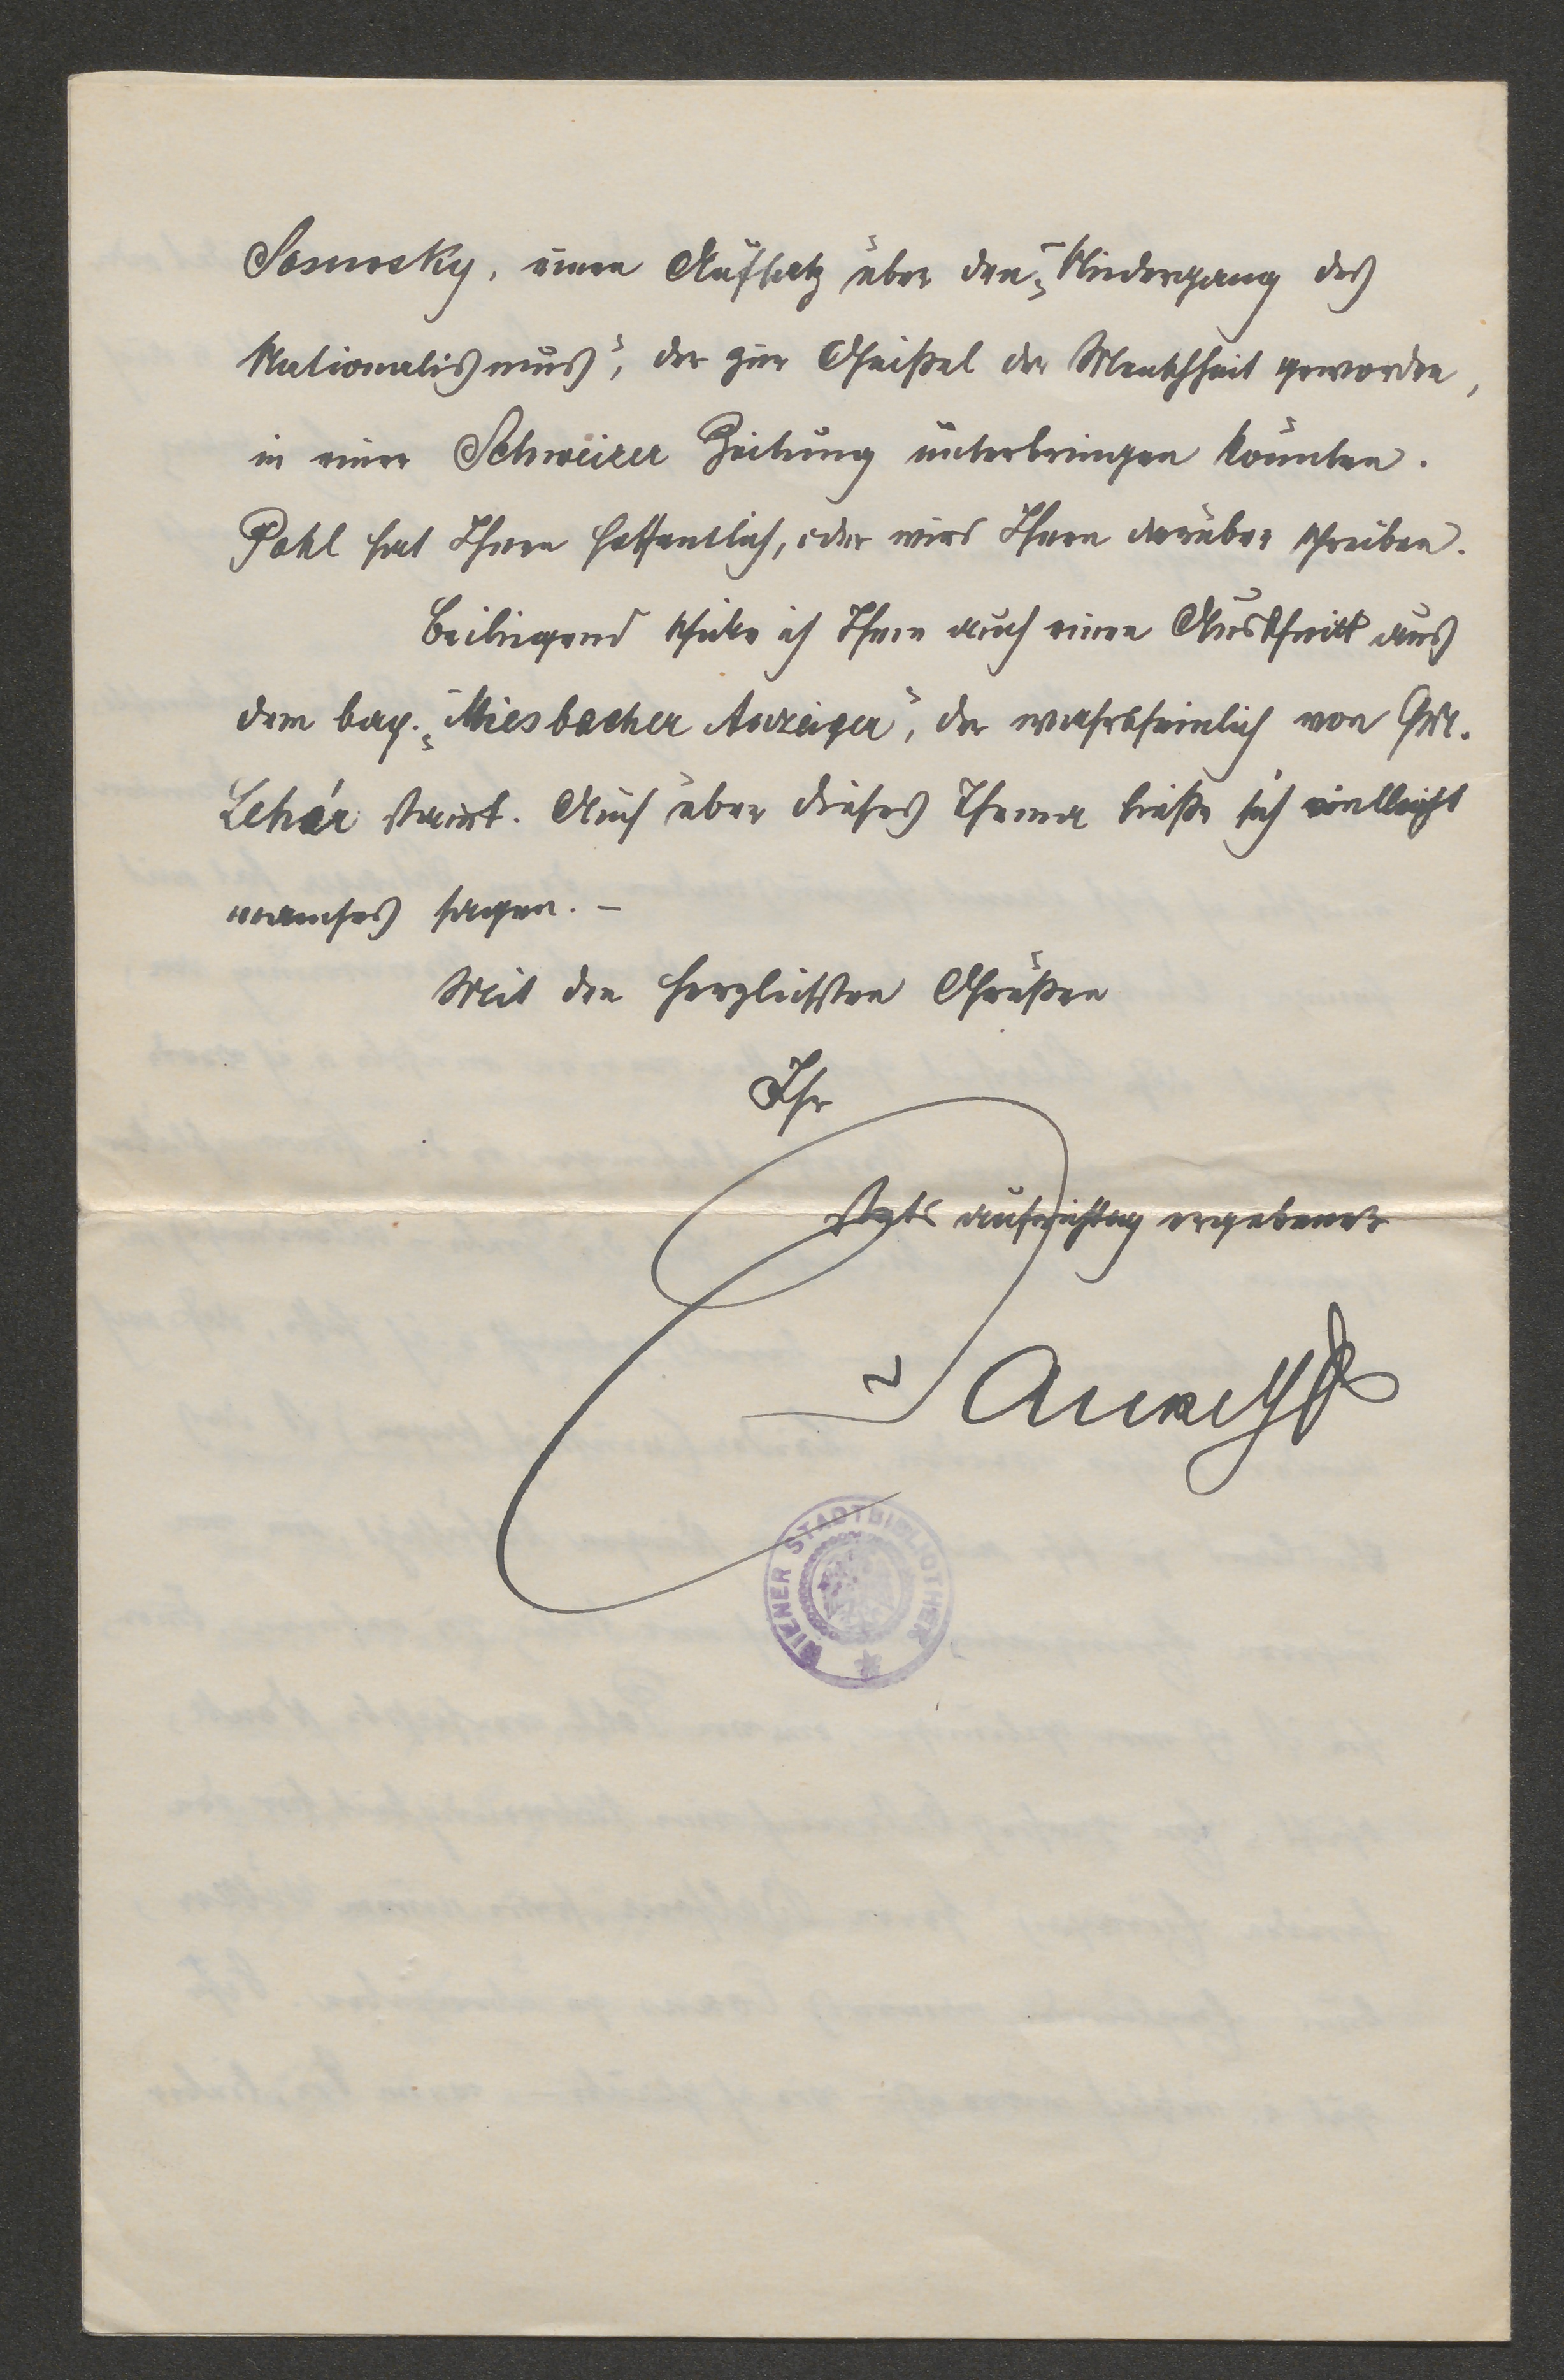 Sosnosky, einen Aufsatz über den „Niedergang des
Nationalismus“, der zur Geißel der Menschheit geworden,
in einer Schweizer Zeitung unterbringen könnten.
Pohl hat Ihnen hoffentlich, oder wird Ihnen darüber schreiben.
Beiliegend schicke ich Ihnen auch einen Ausschnitt aus
dem bay. „Miesbacher Anzeiger“, der wahrscheinlich von
Lehár stammt. Auch über dieses Thema ließe sich vielleicht
manches sagen. –
Mit den herzlichsten Grüßen
Ihr
stets aufrichtig ergebener
WIENER STADTBIBLIOTHEK